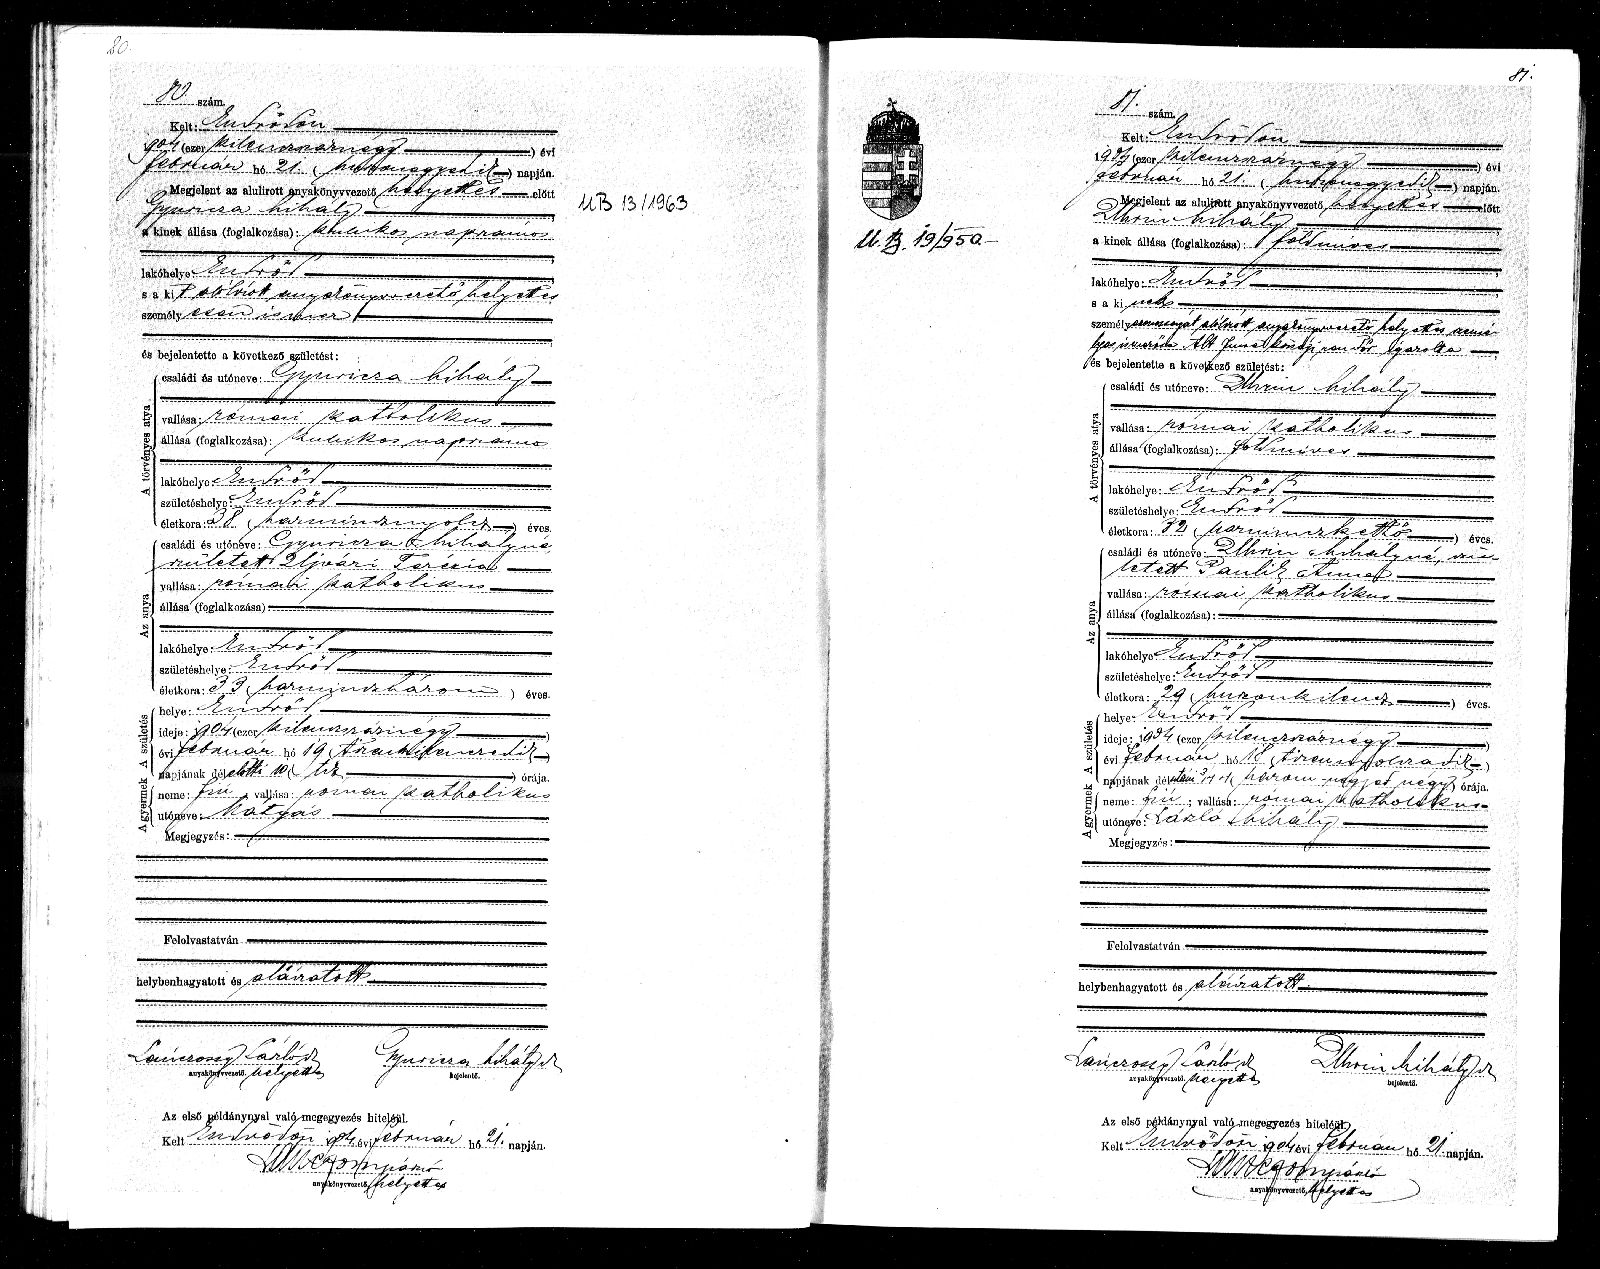 80.
80. szám.
Kelt: Endrődön
904 (ezer kilenczszáznégy) évi
február hó 21. (huszonegyedik) napján.
Megjelent az alulirott anyakönyvvezető helyettes előtt
Gyuricza Mihály
a kinek állása (foglalkozása): kubikos napszámos
lakóhelye: Endrőd
s a kit alólirott anyakönyvvezető helyettes
személyesen ismer
és bejelentette a következő születést:
A törvényes atya
családi és utóneve: Gyuricza Mihály
vallása: római katholikus
állása (foglalkozása): kubikos, napszámos
lakóhelye: Endrőd
születéshelye: Endrőd
életkora: 38 (harmincznyolcz) éves.
Az anya
családi és utóneve: Gyuricza Mihályné
született Ujvári Terézia
vallása: római katholikus
állása (foglalkozása)
lakóhelye: Endrőd
születéshelye: Endrőd
életkora: 33 (harminczhárom) éves.
A születés
helye: Endrőd
ideje: 1904 (ezer kilenczszáznégy)
évi február hó 19 (tizenkilenczedik)
napjának délelőtti 10 (tíz) órája.
A gyermek
neme: fiú; vallása: római katholikus
utóneve: Mátyás
Megjegyzés:
Felolvastatván
helybenhagyatott és aláiratott
Gyuricza Mihály sk
anyakönyvvezető. helyettes
bejelentő.
Az első példánynyal való megegyezés hiteléül.
Kelt Endrődön 904 évi február hó 21. napján.
anyakönyvvezető. helyettes
UB 13/1963
81.
U. B. 19/950
81. szám.
Kelt: Endrődön
1904 (ezer kilenczszáznégy) évi
február hó 21. (huszonegyedik) napján.
Megjelent az alulirott anyakönyvvezető helyettes előtt
Uhrin Mihály
a kinek állása (foglalkozása): földmives
lakóhelye: Endrőd
s a kinek
személyazonosságát alólirott anyakönyvvezető helyettes
igazolta
és bejelentette a következő születést:
A törvényes atya
családi és utóneve: Uhrin Mihály
vallása: római katholikus
állása (foglalkozása): földmives
lakóhelye: Endrőd
születéshelye: Endrőd
életkora: 32 (harminczkettő) éves.
Az anya
családi és utóneve: Uhrin Mihályné, szü-
letett Paulik Anna
vallása: római katholikus
állása (foglalkozása):
lakóhelye: Endrőd
születéshelye: Endrőd
életkora: 29 (huszonkilencz) éves.
A születés
helye: Endrőd
ideje: 1904 (ezer kilenczszáznégy)
évi február hó 18 (tizennyolczadik)
napjának délutáni 3/4 4 (három negyed négy) órája.
A gyermek
neme: fiú; vallása: római katholikus
utóneve: László Mihály
Megjegyzés:
Felolvastatván
helybenhagyatott és aláiratott.
Uhrin Mihály sk
anyakönyvvezető. helyettes
bejelentő.
Az első példánynyal való megegyezés hiteléül.
Kelt Endrődön 904 évi február hó 21. napján.
anyakönyvvezető. helyettes